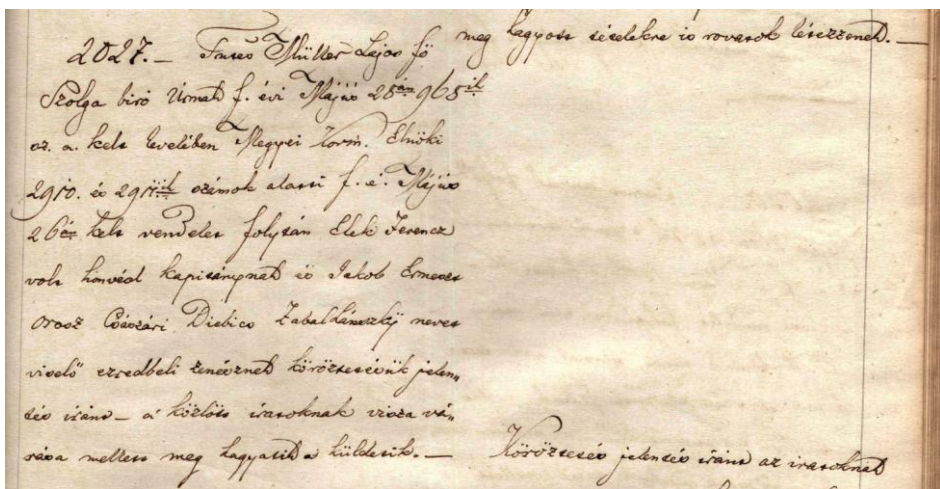 2027. — Müller Lajos fő
Szolga biró Urnak f. évi Május 28án 965ik
sz. a. kelt levelében Megyei Korm. Elnöki
2910. és 2911ik számok alatti f. e. Május
26án kelt rendelet folytán Elek Ferencz
volt honvéd kapitánynak és Jakob Ernest
orosz Császári Diebics Zabalkánszkÿ nevet
viselő ezredbeli zenésznek köröztetésük jelen„
tés iránt — a' közlött iratoknak vissza vá„
rása mellett meg hagyatik a küldetik. —
meg hagyott tételekre is rovatok létezzenek. —
Köröztetés jelentés iránt az iratoknak